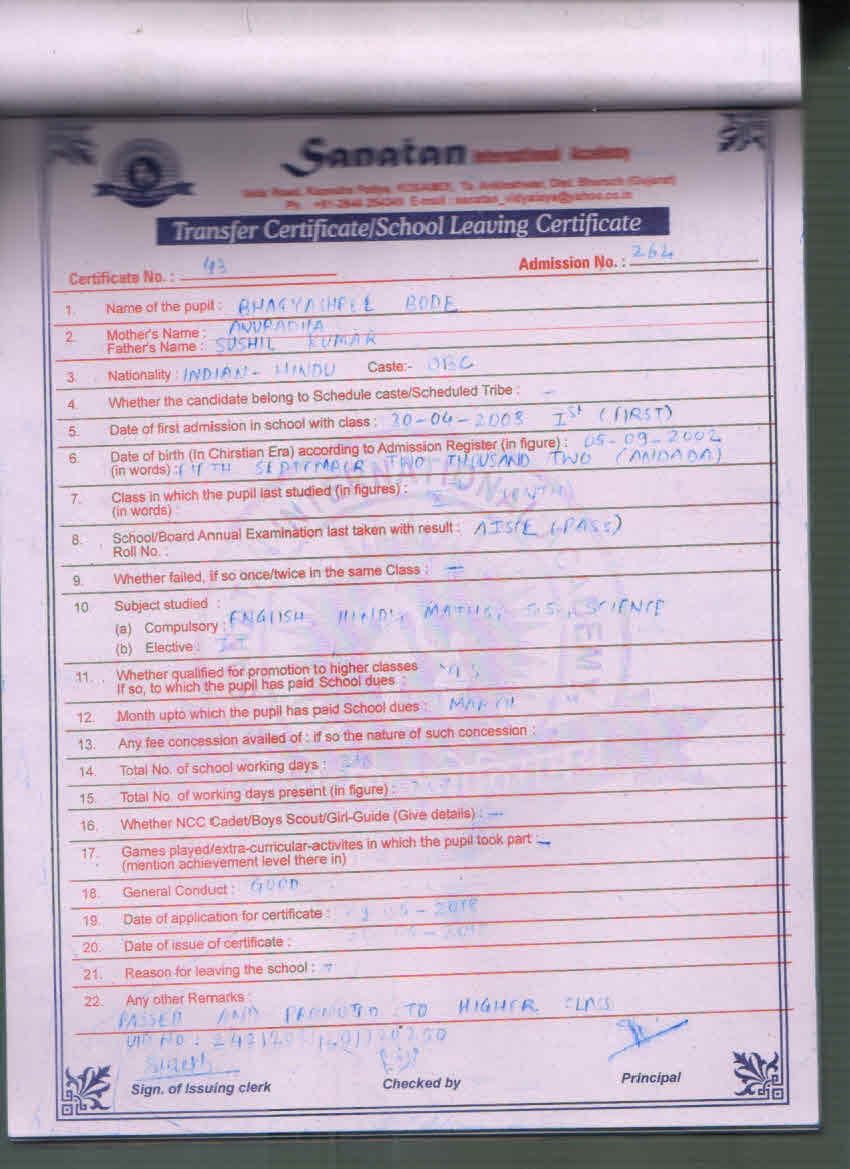 Sanatan International Academy
Road, Kosamdi, Ta. Ankleshwar, Dist. Bharuch (Gujarat)
Ph. E-mail : sanatan_vidyalaya@yahoo.co.in
Transfer Certificate/School Leaving Certificate
Certificate No. : 43 Admission No. : 262
1. Name of the pupil : BHAGYASHREE BODE
2. Mother's Name : ANURADHA
Father's Name : SUSHIL KUMAR
3. Nationality : INDIAN - HINDU Caste:- OBC
4. Whether the candidate belong to Schedule caste/Scheduled Tribe : -
5. Date of first admission in school with class : 30-04-2008 Ist (FIRST)
6. Date of birth (In Chirstian Era) according to Admission Register (in figure) : 05-09-2002
(in words) : FIFTH SEPTEMBER TWO THOUSAND TWO
7. Class in which the pupil last studied (in figures) : X
(in words) :
8. School/Board Annual Examination last taken with result : AISSE (PASS)
Roll No. :
9. Whether failed, if so once/twice in the same Class : -
10 Subject studied :
(a) Compulsory : ENGLISH HINDI, MATHS, S.S., SCIENCE
(b) Elective : IT
11. Whether qualified for promotion to higher classes YES
If so, to which the pupil has paid School dues :
12. Month upto which the pupil has paid School dues : MARCH
13. Any fee concession availed of : if so the nature of such concession : -
14. Total No. of school working days :
15. Total No. of working days present (in figure) :
16. Whether NCC Cadet/Boys Scout/Girl-Guide (Give details) : -
17. Games played/extra-curricular-activites in which the pupil took part : -
(mention achievement level there in)
18. General Conduct : GOOD
19. Date of application for certificate : 05-2018
20. Date of issue of certificate : 05-2018
21. Reason for leaving the school : -
22. Any other Remarks :
PASSED AND PROMOTED TO HIGHER CLASS
UID NO :
Sign. of Issuing clerk Checked by Principal